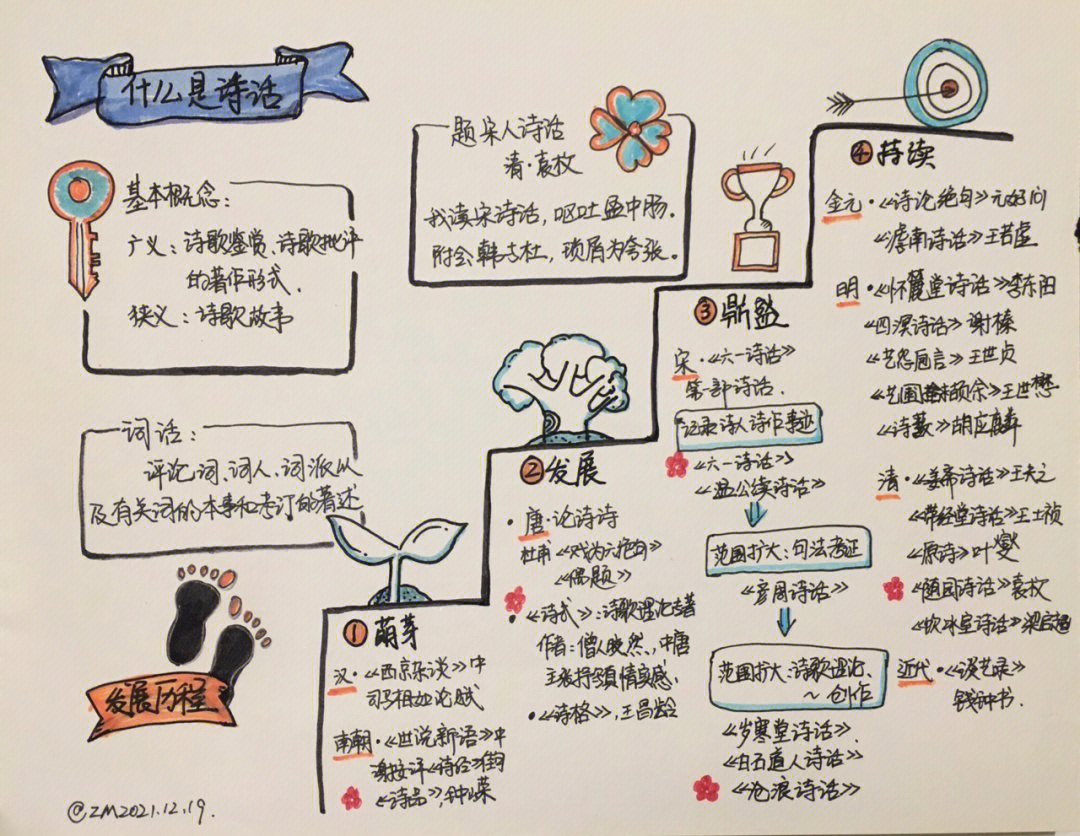 什么是诗话
基本概念：
广义：诗歌鉴赏、诗歌批评
的著作形式.
狭义：诗歌故事
词话：
评论词、词人、词派以
及有关词的本事和考订的著述
发展历程
@ZM2021.12.19.
题宋人诗话
清·袁枚
我读宋诗话，呕吐盈中肠.
附会韩与杜，琐屑为夸张.
① 萌芽
汉·《西京杂谈》中
司马相如论赋
南朝·《世说新语》中
谢安评《诗经》佳句
《诗品》，钟嵘
② 发展
·唐·论诗诗
杜甫《戏为六绝句》
《偶题》
·《诗式》：诗歌理论专著
作者：僧人皎然，中唐
主张抒真情实感.
·《诗格》，王昌龄
③ 鼎盛
宋·《六一诗话》
第一部诗话.
记录诗人诗作事迹
《六一诗话》
《温公续诗话》
范围扩大：句法考证
《彦周诗话》
范围扩大：诗歌理论、
~创作
《岁寒堂诗话》、
《白石道人诗话》
《沧浪诗话》
④ 持续
金元·《诗论绝句》元好问
《滹南诗话》王若虚
明·《怀麓堂诗话》李东田
《四溟诗话》谢榛
《艺苑卮言》王世贞
《艺圃撷余》王世懋
《诗薮》胡应麟
清·《姜斋诗话》王夫之
《带经堂诗话》王士祯
《原诗》叶燮
《随园诗话》袁枚
《饮冰室诗话》梁启超
近代·《谈艺录》
钱钟书.